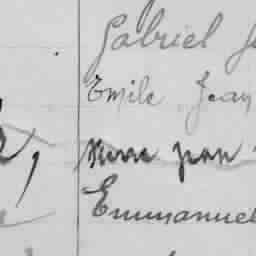 Gabriel J
Emile Jean
Pierre Jean
Emmanuel